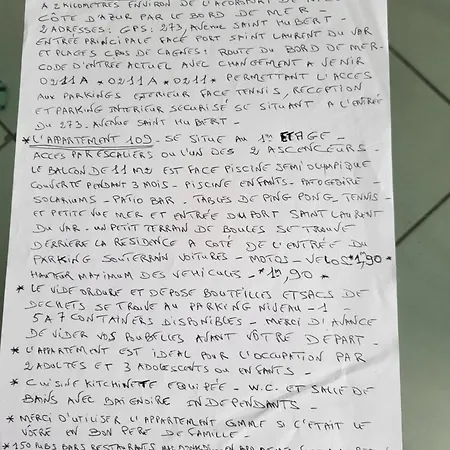 A 2 KILOMETRES ENVIRON DE L'AEROPORT DE
CÔTE D'AZUR PAR LE BORD DE MER -
2 ADRESSES : GPS : 273, AVENUE SAINT HUBERT -
ENTREE PRINCIPALE FACE PORT SAINT LAURENT DU VAR
ET PLAGES CROS DE CAGNES : ROUTE DU BORD DE MER -
CODE D'ENTREE ACTUEL AVEC CHANGEMENT A VENIR
0211A * 0211A * 0211 * PERMETTANT L'ACCES
AUX PARKINGS EXTERIEUR FACE TENNIS, RECEPTION
ET PARKING INTERIEUR SECURISÉ SE SITUANT A L'ENTRÉE
DU 273. AVENUE SAINT HUBERT -
* L'APPARTEMENT 109 - SE SITUE AU 1er ETAGE -
ACCES PAR ESCALIERS OU L'UN DES 2 ASCENCEURS -
LE BALCON DE 11 M2 EST FACE PISCINE SEMI OLYMPIQUE
COUVERTE PENDANT 3 MOIS - PISCINE ENFANTS - PATOGEOIRE -
SOLARIUMS - PATIO BAR - TABLES DE PING PONG - TENNIS -
ET PETITE VUE MER ET ENTRÉE DU PORT SAINT LAURENT
DU VAR - UN PETIT TERRAIN DE BOULES SE TROUVE
DERRIERE LA RESIDENCE A COTÉ DE L'ENTRÉE DU
PARKING SOUTERRAIN VOITURES - MOTOS - VELOS *1m,90 *
HAUTEUR MAXIMUM DES VEHICULES - *1m,90 *
* LE VIDE ORDURE ET DEPOSE BOUTEILLES ET SACS DE
DECHETS SE TROUVE AU PARKING NIVEAU - 1 -
5 A 7 CONTAINERS DISPONIBLES - MERCI D'AVANCE
DE VIDER VOS POUBELLES AVANT VÔTRE DEPART -
* L'APPARTEMENT EST IDEAL POUR L'OCCUPATION PAR
2 ADULTES ET 3 ADOLESCENTS OU ENFANTS -
* CUISINE KITCHINETTE EQUIPÉE - W.C. ET SALLE DE
BAINS AVEC BAIGNOIRE INDEPENDANTS -
* MERCI D'UTILISER L'APPARTEMENT COMME SI C'ETAIT LE
VÔTRE EN BON PERE DE FAMILLE -
* 150 PUBS BARS RESTAURANTS